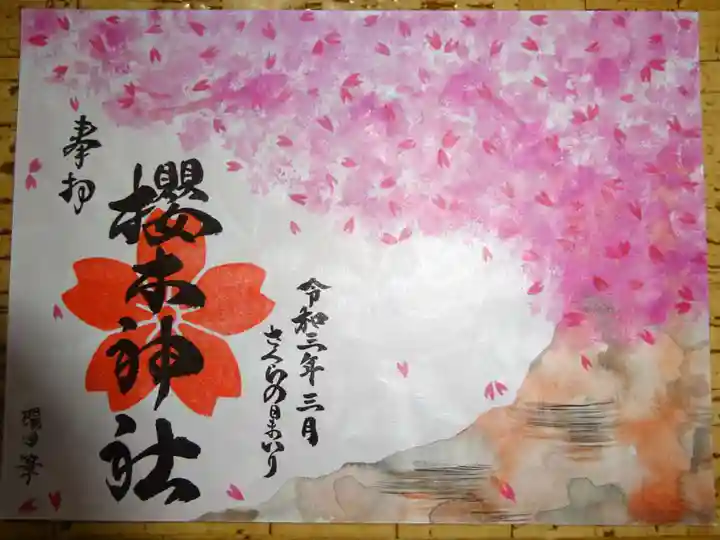 令和三年三月
さくらの日まいり
奉拝
櫻木神社